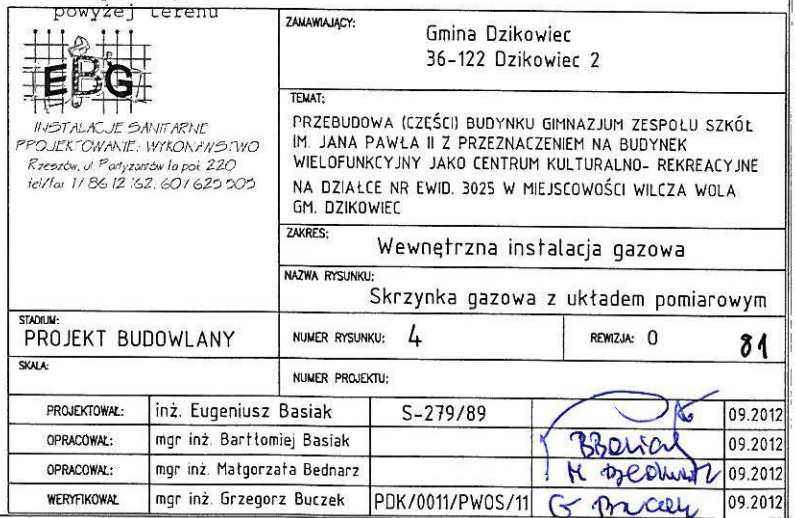 powyżej terenu
EBG
INSTALACJE SANITARNE
PROJEKTOWANIE: WYKONAWSTWO
Rzeszów, ul. Partyzantów 1a pok 220
tel/fax 17 86 12 , 607 625 505
ZAMAWIAJĄCY:
Gmina Dzikowiec
36-122 Dzikowiec 2
TEMAT:
PRZEBUDOWA (CZĘŚCI) BUDYNKU GIMNAZJUM ZESPOŁU SZKÓŁ
IM. JANA PAWŁA II Z PRZEZNACZENIEM NA BUDYNEK
WIELOFUNKCYJNY JAKO CENTRUM KULTURALNO- REKREACYJNE
NA DZIAŁCE NR EWID. 3025 W MIEJSCOWOŚCI WILCZA WOLA
GM. DZIKOWIEC
ZAKRES:
Wewnętrzna instalacja gazowa
NAZWA RYSUNKU:
Skrzynka gazowa z układem pomiarowym
STADIUM:
PROJEKT BUDOWLANY
NUMER RYSUNKU: 4
REWIZJA: 0
81
SKALA:
NUMER PROJEKTU:
PROJEKTOWAŁ: inż. Eugeniusz Basiak S-279/89 09.2012
OPRACOWAŁ: mgr inż. Bartłomiej Basiak BBasiak 09.2012
OPRACOWAŁ: mgr inż. Małgorzata Bednarz M Bednarz 09.2012
WERYFIKOWAŁ mgr inż. Grzegorz Buczek PDK/0011/PWOS/11 G Buczek 09.2012